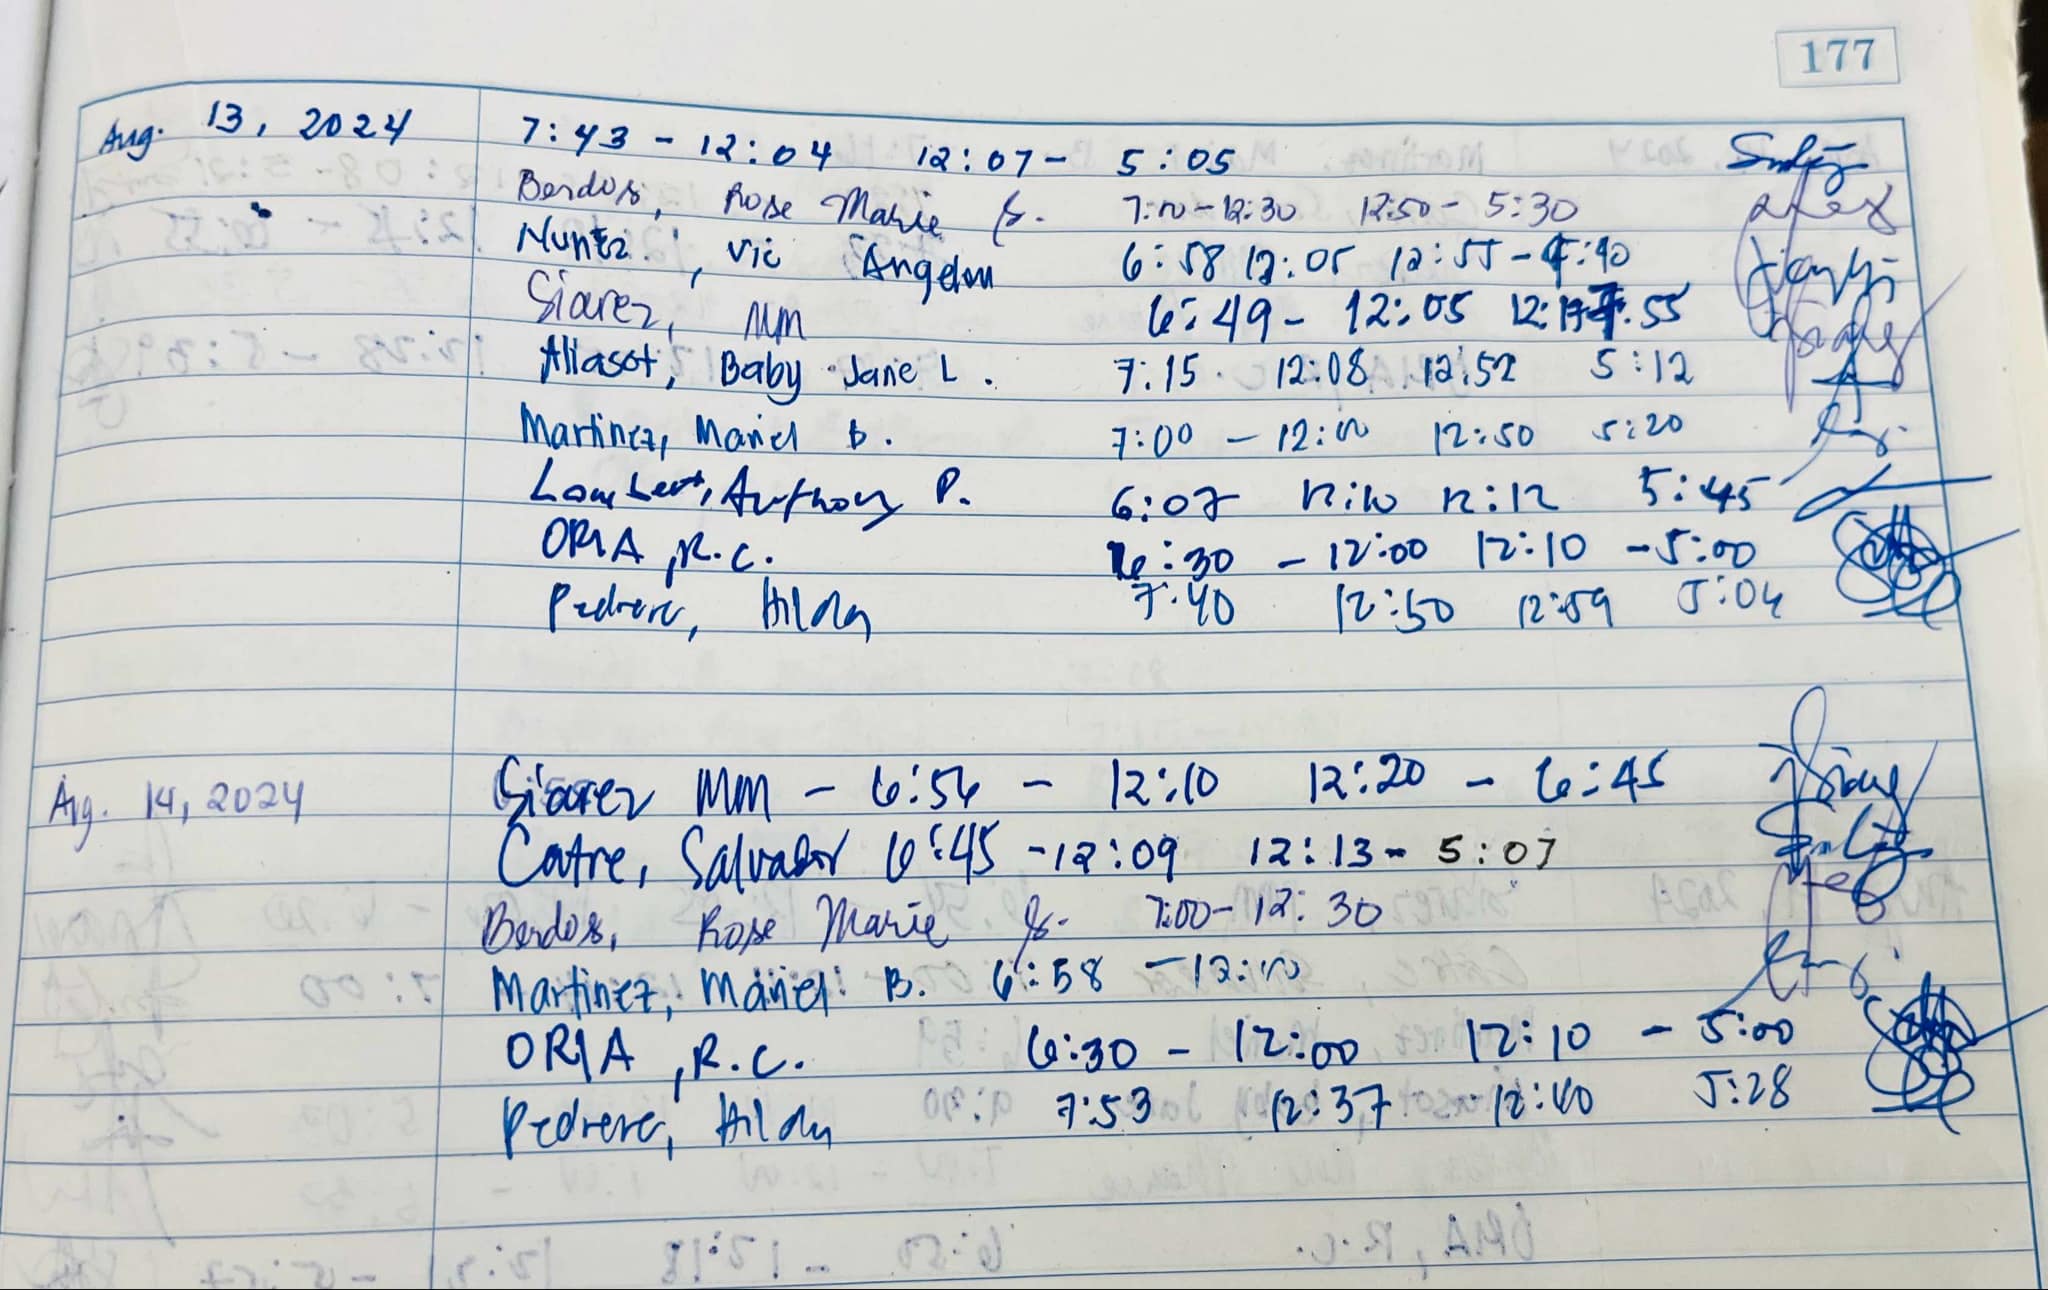 177
Aug. 13, 2024 7:43 - 12:04 12:07 - 5:05
Berdos, Rose Marie S. 7:00 - 12:30 12:50 - 5:30
Nuñez, Vic Angelou 6:58 12:05 12:55 - :40
Siarez, MM 6:49 - 12:05 .55
Aliasot, Baby Jane L. 7:15 12:08 12:52 5:12
Martinez, Mariel B. 7:00 - 12:00 12:50 5:20
Lambert, Anthony P. 6:07 12:10 12:12 5:45
ORIA, R.C. 6:30 - 12:00 12:10 - 5:00
Pedrere, Hilda 7:40 12:50 12:59 5:04
Aug. 14, 2024 Siarez MM - 6:56 - 12:10 12:20 - 6:45
Catre, Salvador 6:45 - 12:09 12:13 - 5:07
Berdos, Rose Marie S. 7:00 - 12:30
Martinez, Mariel B. 6:58 - 12:00
ORIA, R.C. 6:30 - 12:00 12:10 - 5:00
Pedrere, Hilda 7:53 12:37 12:40 5:28